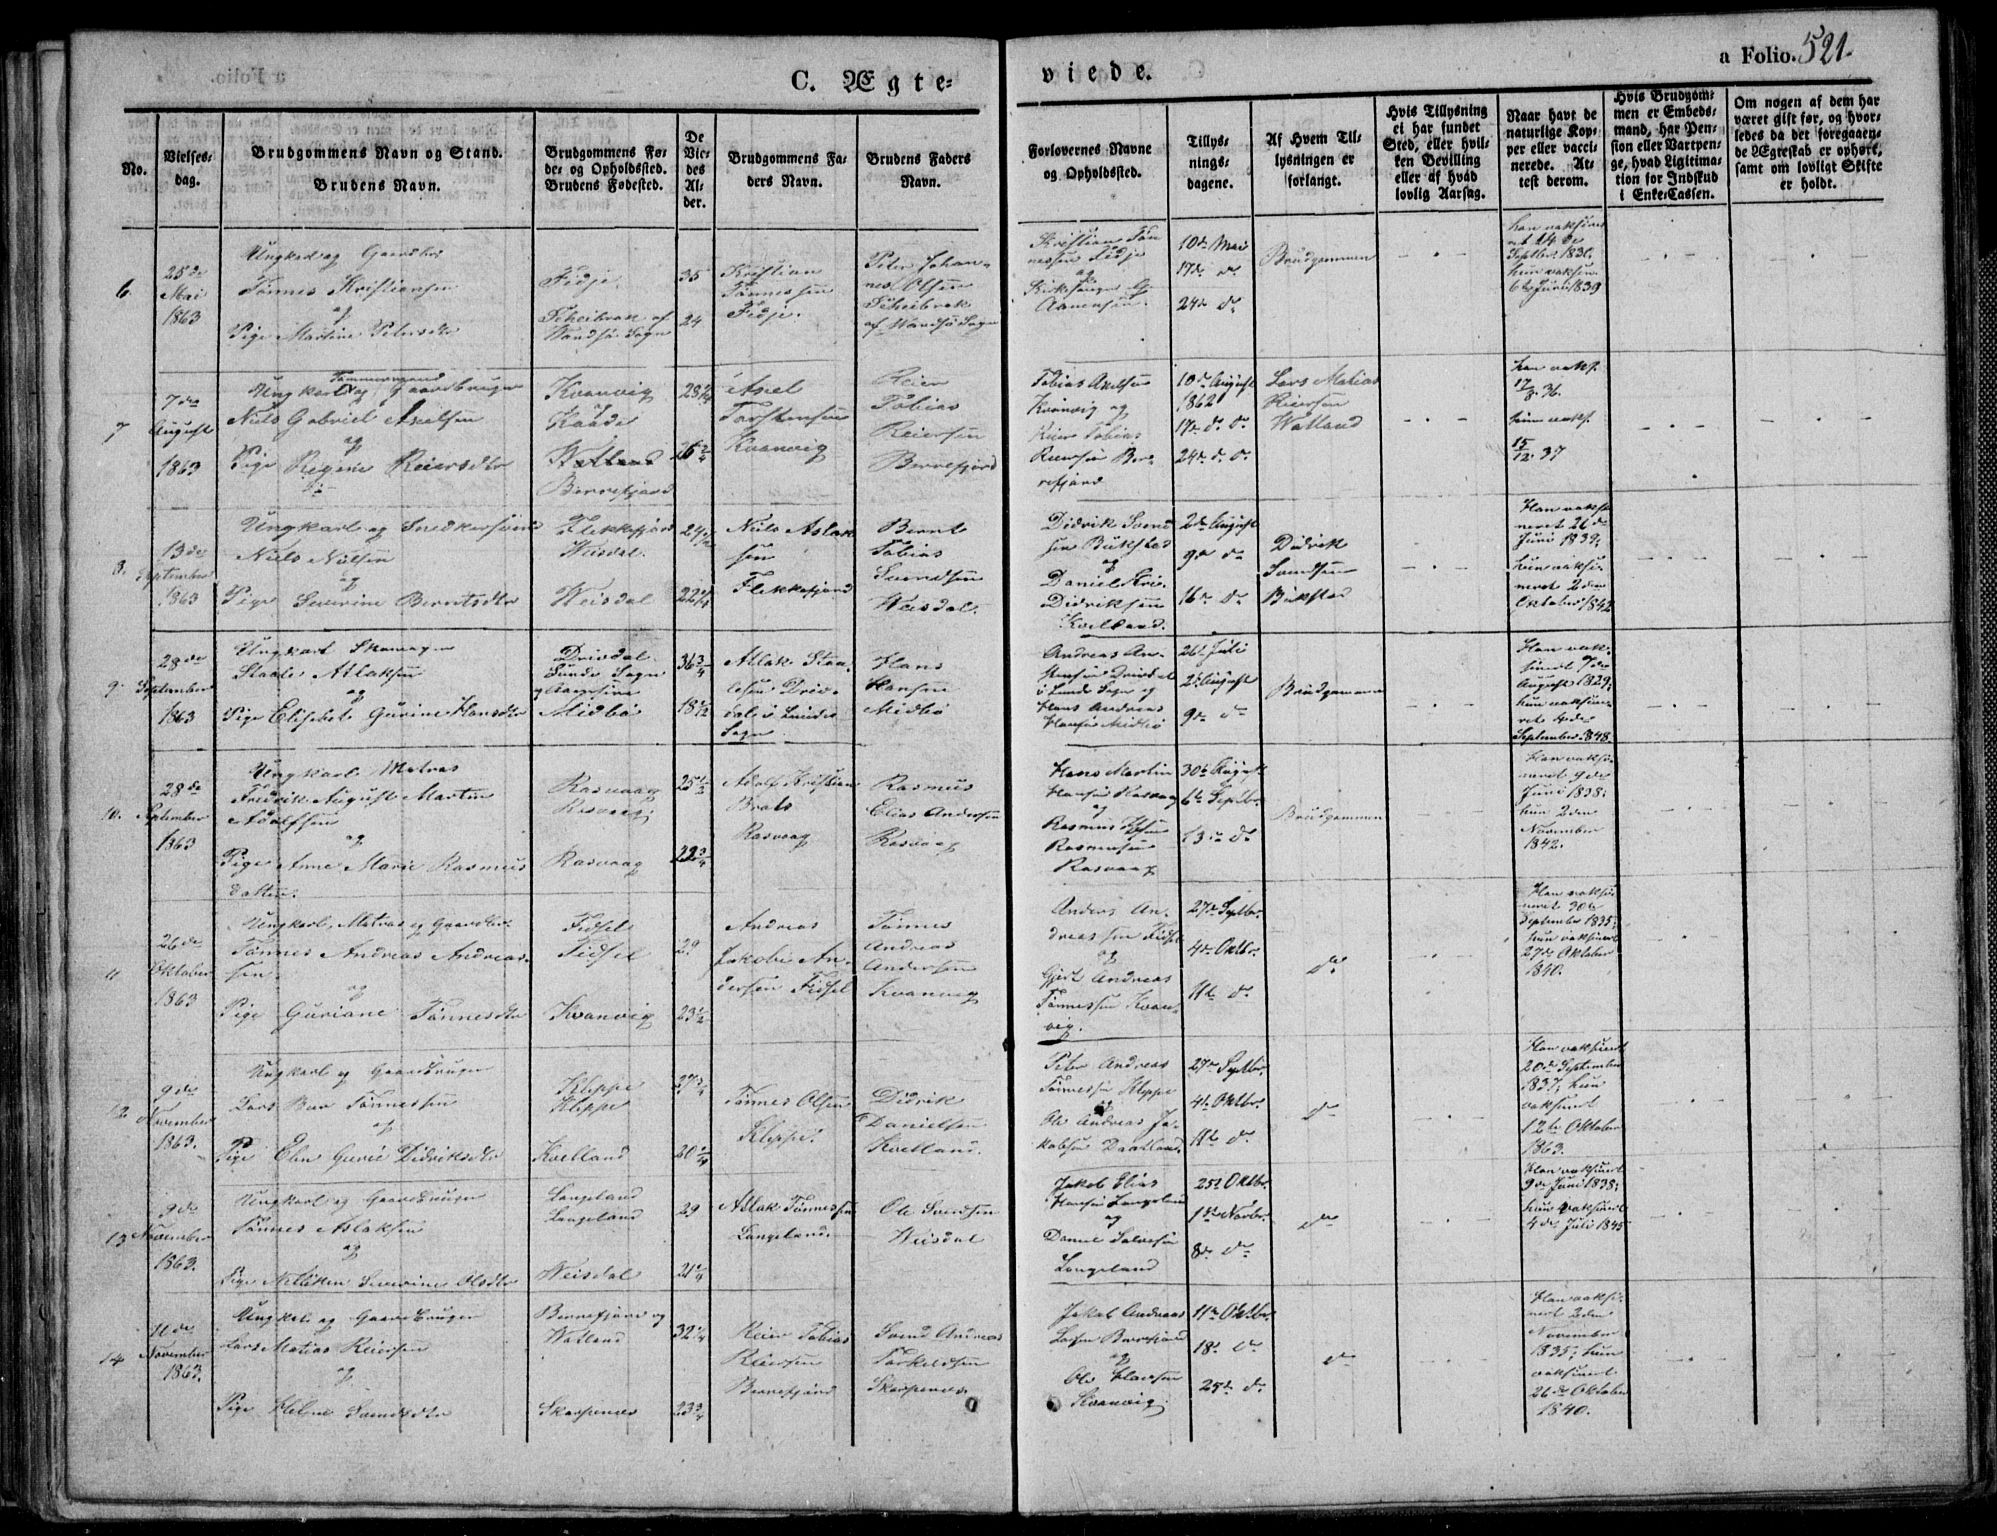 a Folio. 521.
C. Ægte=
viede.
No.
Vielses-
dag.
Brudgommens Navn og Stand.
Brudens Navn.
Brudgommens Fø-
de- og Opholdssted.
Brudens Fødested.
De
Vie-
des
Al-
der.
Brudgommens Fa-
ders Navn.
Brudens Faders
Navn.
Forlovernes Navne
og Opholdssted.
Tillys-
nings-
dagene.
Af Hvem Til-
lysningen er
forlangt.
Hvis Tillysning
ei har fundet
Sted, eller hvil-
ken Bevilling
eller af hvad
lovlig Aarsag.
Naar havt de
naturlige Kop-
per eller vacci-
nerede. At-
test derom.
Hvis Brudgom-
men er Embeds-
mand, har Pen-
sion eller Vartpen-
ge, hvad Ligitima-
tion for Indskud
i Enke-Cassen.
Om nogen af dem har
været gift før, og hvor-
ledes da det foregaaen-
de Ægteskab er ophørt,
samt om lovligt Skifte
er holdt.
6.
25de
Mai
1863
Ungkarl og
Tønnes Kristiansen
og
Pige Martine Petersdtr
Fedje
af
Sogn
35
24
Kristian
Tønnessen
Fedje.
Peter Johan-
nes Olsen
Kristian Tøn
nessen Fedje
og
Aanensen.
10de Mai
17de do
24de do
Brudgommen
han vaksine
ret 14de
Septbr 1830.
hun vaksin.
6te Juni 1839
7
7de
August
1863
Tømmermand
Ungkarl og Gaardbruger
Niels Gabriel Axelsen
og
Pige Regine Reiersdtr
Kvanvig
Watland
Berrefjord
28 3/4
26 3/4
Axel
Torstensen
Kvanvig
Reier
Tobias
Reiersen
Berrefjord
Tobias Axelsen
Kvanvig og
Reier Tobias
Reiersen Ber-
refjord
10de August
1862
17de do do
24de do do
Lars Matias
Reiersen
Watland
han vaks.
17/8 36.
hun vaks.
15/12 37
8.
13de
September
1863
Ungkarl og Snedkersvend
Niels Nielsen
og
Pige Severine Berntsdtr
Flekkefjord
Weisdal.
Weisdal
Niels Aslak
sen
Flekkefjord
Bernt
Tobias
Svendsen
Weisdal.
Didrik Svend
sen Bukstad
og
Daniel
Didriksen
Kvelland.
2de August
9de do
16de do
Didrik
Svendsen
Bukstad
Han vaksi
neret 26de
Juni 1839;
hun vaksi-
neret 2den
Oktober 1842
9.
28de
September
1863
Ungkarl Skomager
Staale Aslaksen
og
Pige Elisabet Gurine Hansdtr
Drivdal
Lunde Sogn
Midbø
36 3/4
Aslak Staa-
lesen Driv-
dal i Lunde
Sogn
Hans
Hansen
Midbø
Andreas An-
Drivdal
i Lunde Sogn og
Hans Andreas
Hansen Midbø
26de Juli
2de August
9de do
Brudgommen
Han vak-
sineret 7de
August 1829;
hun vaksine-
ret 4de
September 1848.
10.
28de
September
1863
Ungkarl Matros
Fredrik August Martin
Adolfsen
og
Pige Anne Marie Rasmus
datter.
Rasvaag
Rasvaag
Rasvaag
25 1/2
22 3/4
Adolf Kristian
Rasvaag
Rasmus
Elias Andersen
Rasvaag
Hans Martin
Hansen Rasvaag
og
Rasmus
Rasmussen
Rasvaag
30te August
6te Septbr.
13de do
Brudgommen
Han vaksi-
neret 9de
Juni 1838;
hun 2den
November
1842.
11
26de
Oktober
1863
Ungkarl, Matros og Gaardbr.
Tønnes Andreas Andreas-
sen
og
Pige Guriane Tønnesdtr
Fidsel
Fidsel
Kvanvig
29
23 1/2
Andreas
Jakob An-
dersen Fidsel
Tønnes
Andreas
Andersen
Kvanvig
Anders An-
dreassen Fidsel
og
Gjert Andreas
Tønnessen Kvan-
vig.
27de Septbr.
4de Oktbr.
11te do
do
Han vaksi-
neret 30te
September 1835;
hun vaksineret
27de Oktober
1840.
12
9de
November
1863.
Ungkarl og Gaardbruger
Lars Tønnessen
og
Pige Didriksdtr
Kleppe
Kleppe
Kvelland
Tønnes Olsen
Kleppe.
Didrik
Danielsen
Kvelland.
Peter Andreas
Tønnessen Kleppe
og
Ole Andreas Ja-
kobsen
27de Septbr.
4de Oktbr.
11te do
do
Han vaksineret
20de September
1837; hun
vaksineret
12te Oktober
1863.
13
9de
November
1863.
Ungkarl og Gaardbruger
Tønnes Aslaksen
og
Pige Severine Olsdtr
Langeland
Langeland
Weisdal
29
21 1/4
Aslak Tønnessen
Langeland.
Ole Svendsen
Weisdal
Jakob Elias
Hansen Langeland
og
Langeland
25de Oktbr.
1ste Novbr.
8de do
do
Han vaksineret
9de Juni 1838;
hun vaksineret
4de Juli 1845
14
11te
November
1863.
Ungkarl og Gaardbruger
Lars Matias Reiersen
og
Pige Helene Svendsdtr
Berrefjord og
Watland
Skarpenes
32 1/4
23 3/4
Reier Tobias
Reiersen
Berrefjord
Svend Andreas
Torkeldsen
Skarpenes
Jakob Andreas
Larsen Berrefjord
og
Ole Hansen
Kvanvig.
11te Oktbr.
18de do
25de do
do
Han vaksi-
neret 2den
November
1835; hun
vaksineret
26de Oktober
1840.